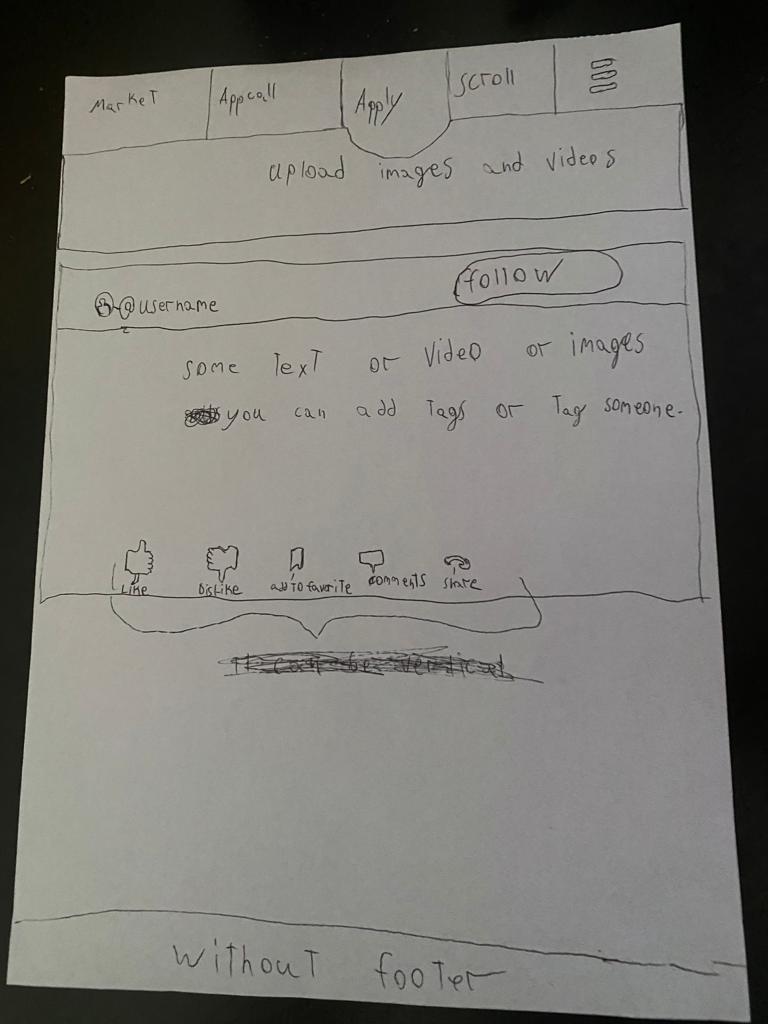 Market Appcall Apply Scroll
upload images and videos
@username follow
some Text or Video or images
you can add Tags or Tag someone.
Like Dislike add to favorite comments share
without footer